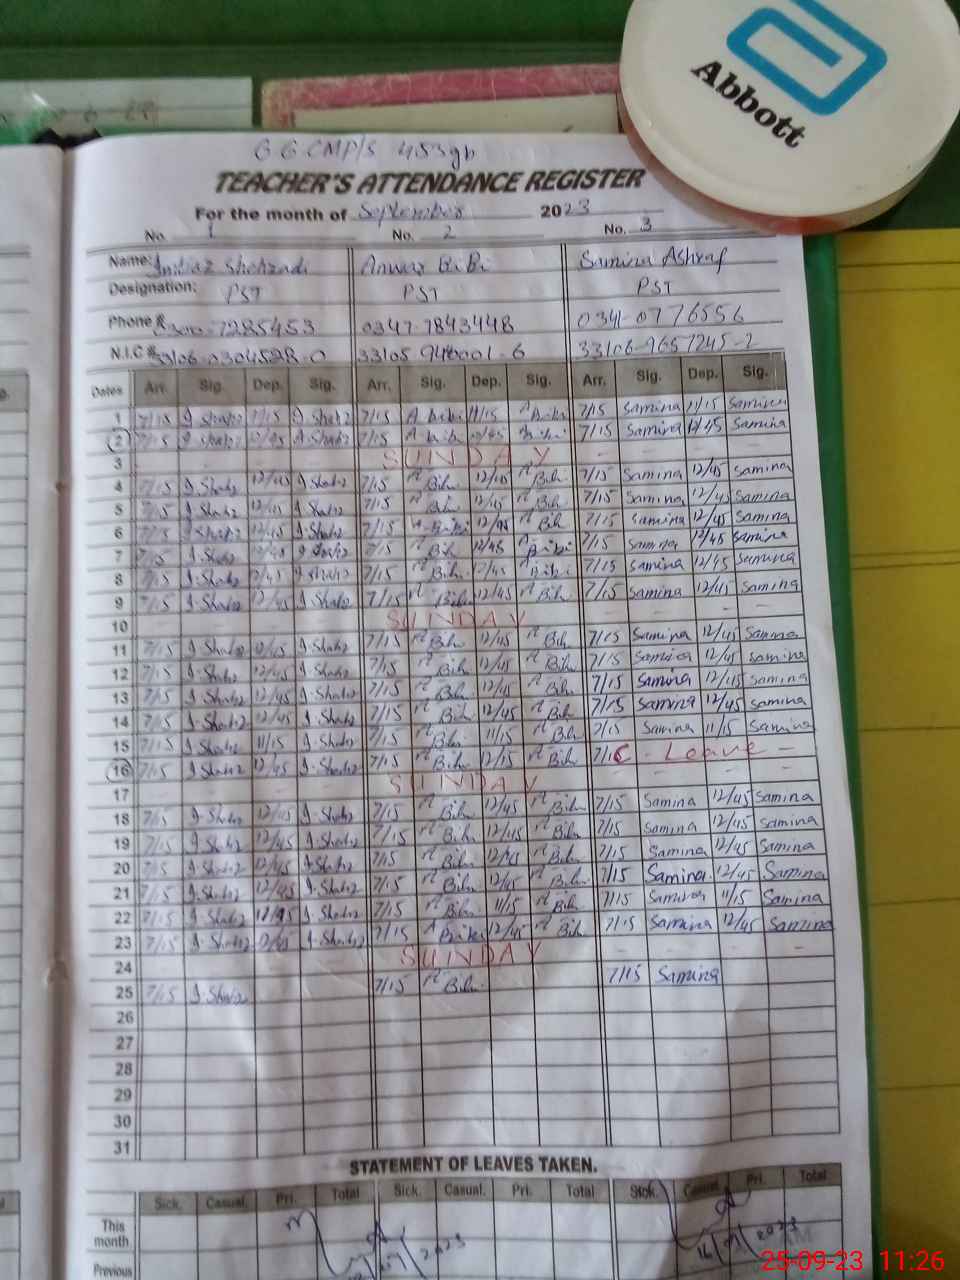 Abbott
G G.CMP/S 453gb
TEACHER'S ATTENDANCE REGISTER
For the month of September 2023
No. 1 No. 2 No. 3
Name: Imtiaz Shehzadi Anwar BiBi Samina Ashraf
Designation: PST PST PST
Phone # 7285453 0347-7843448 0341-0776556
N.I.C # 33106-0304528-0 33105 946001-6 33106-9657245-2
Dates Arr. Sig. Dep. Sig. Arr. Sig. Dep. Sig. Arr. Sig. Dep. Sig.
1 7/15 I shahz 11/15 I. Shahz 7/15 A bibi 11/15 A Bibi 7/15 Samina 11/15 Samina
2 7/15 I shahz 12/45 I. Shahz 7/15 A bibi 12/45 A bibi 7/15 Samina 12/45 Samina
3 SUNDAY
4 7/15 I. Shahz 12/45 I. Shahz 7/15 A Bibi 12/45 A Bibi 7/15 Samina 12/45 Samina
5 7/15 I. Shahz 12/45 I. Shahz 7/15 A Bibi 12/45 A Bibi 7/15 Samina 12/45 Samina
6 7/15 I. Shahz 12/45 I. Shahz 7/15 A Bibi 12/45 A Bibi 7/15 Samina 12/45 Samina
7 7/15 I. Shahz 12/45 I. Shahz 7/15 A Bibi 12/45 A Bibi 7/15 Samina 12/45 Samina
8 7/15 I. Shahz 12/45 I. Shahz 7/15 A Bibi 12/45 A Bibi 7/15 Samina 12/45 Samina
9 7/15 I. Shahz 12/45 I. Shahz 7/15 A Bibi 12/45 A Bibi 7/15 Samina 12/45 Samina
10 SUNDAY
11 7/15 I Shahz 12/45 I. Shahz 7/15 A Bibi 12/45 A Bibi 7/15 Samina 12/45 Samina
12 7/15 I. Shahz 12/45 I. Shahz 7/15 A Bibi 12/45 A Bibi 7/15 Samina 12/45 Samina
13 7/15 I. Shahz 12/45 I. Shahz 7/15 A Bibi 12/45 A Bibi 7/15 Samina 12/45 Samina
14 7/15 I. Shahz 12/45 I. Shahz 7/15 A Bibi 12/45 A Bibi 7/15 Samina 12/45 Samina
15 7/15 I Shahz 11/15 I. Shahz 7/15 A Bibi 11/15 A Bibi 7/15 Samina 11/15 Samina
16 7/15 I Shahz 12/45 I. Shahz 7/15 A Bibi 12/15 A Bibi - Leave -
17 SUNDAY
18 7/15 I. Shahz 12/45 I. Shahz 7/15 A Bibi 12/45 A Bibi 7/15 Samina 12/45 Samina
19 7/15 I. Shahz 12/45 I. Shahz 7/15 A Bibi 12/45 A Bibi 7/15 Samina 12/45 Samina
20 7/15 I. Shahz 12/45 I. Shahz 7/15 A Bibi 12/45 A Bibi 7/15 Samina 12/45 Samina
21 7/15 I. Shahz 12/45 I. Shahz 7/15 A Bibi 12/45 A Bibi 7/15 Samina 12/45 Samina
22 7/15 I. Shahz I. Shahz 7/15 A Bibi 11/15 A Bibi 7/15 Samina 11/15 Samina
23 7/15 I. Shahz 12/45 I. Shahz 7/15 A Bibi 12/45 A Bibi 7/15 Samina 12/45 Samina
24 SUNDAY
25 7/15 I. Shahz 7/15 A Bibi 7/15 Samina
26
27
28
29
30
31
STATEMENT OF LEAVES TAKEN.
Sick. Casual. Pri. Total Sick. Casual. Pri. Total Sick. Casual. Pri. Total
This month 2023 16/9/2023
Previous
25-09-23 11:26